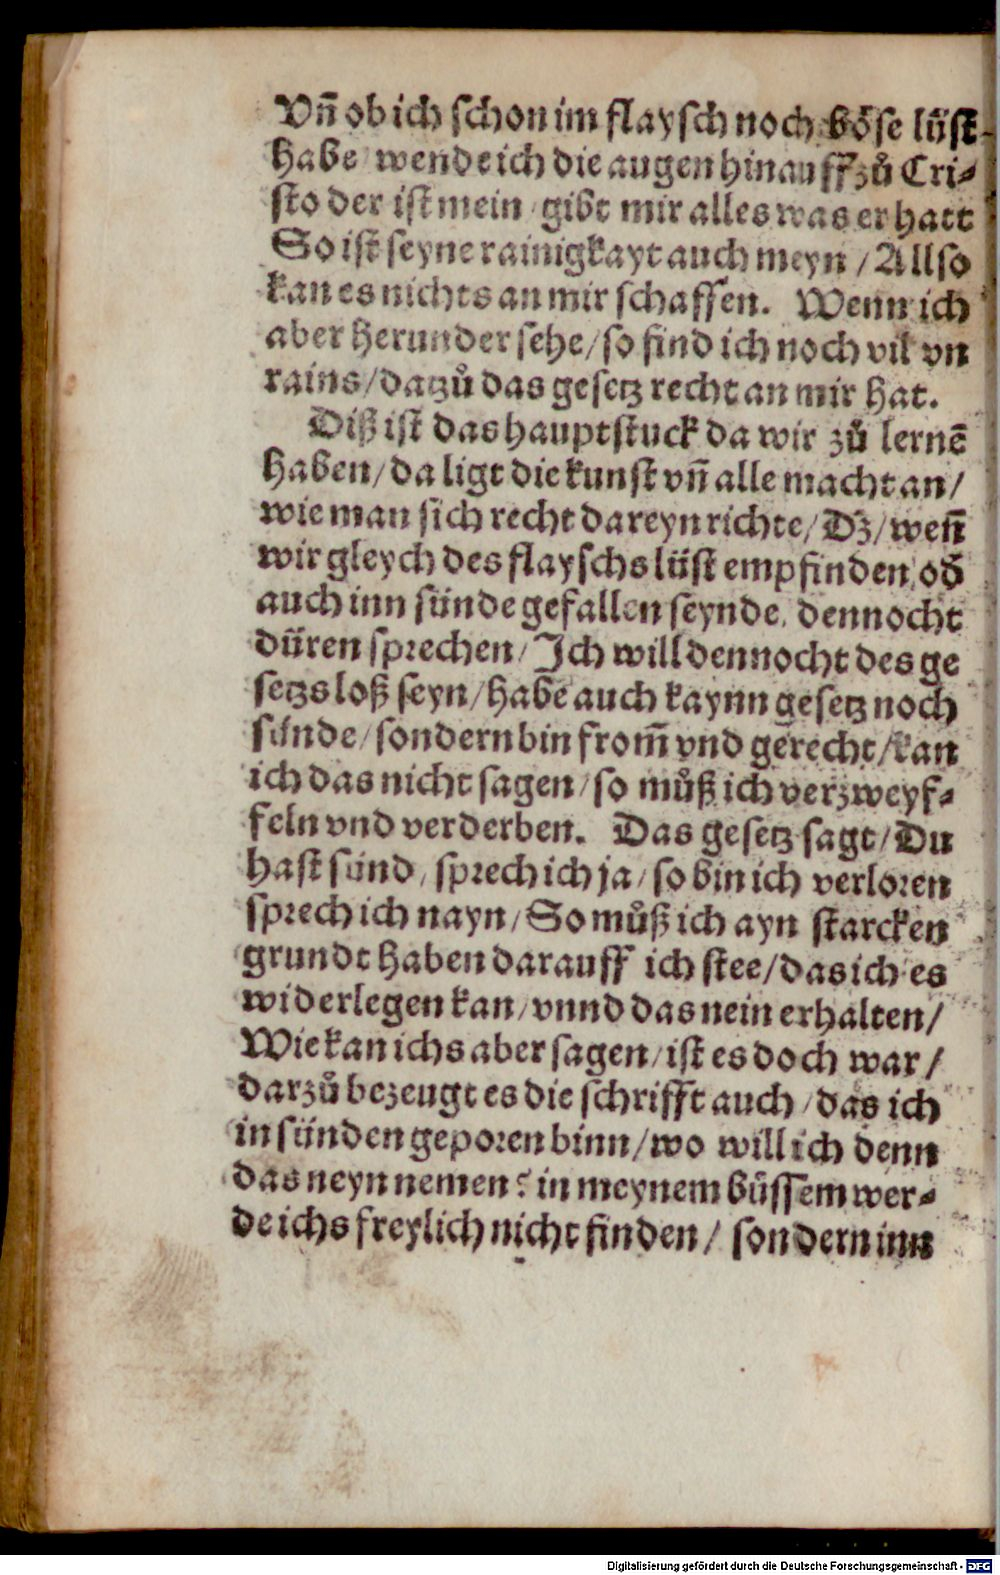 Vñ ob ich schon im flaysch noch böse lüst
habe wende ich die augen hinauff zů Cri⸗
sto der ist mein / gibt mir alles was er hatt
So ist seyne rainigkayt auch meyn / Allso
kan es nichts an mir schaffen. Wenn ich
aber herunder sehe / so find ich noch vil vn
rains / datzů das gesetz recht an mir hat.
Diß ist das hauptstuck da wir zů lernē
haben / da ligt die kunst vñ alle macht an /
wie man sich recht dareyn richte / Dz / weñ
wir gleych des flayschs lüst empfinden / od̄
auch inn sünde gefallen seynde, dennocht
düren sprechen / Ich will dennocht des ge
setzs loß seyn / habe auch kaynn gesetz noch
sünde / sondern bin from̄ vnd gerecht / kan
ich das nicht sagen / so můß ich verzweyf⸗
feln vnd verderben. Das gesetz sagt / Du
hast sünd / sprech ich ja / so bin ich verloren
sprech ich nayn / So můß ich ayn starcken
grundt haben darauff ich stee / das ich es
widerlegen kan / vnnd das nein erhalten /
Wie kan ichs aber sagen / ist es doch war /
darzů bezeugt es die schrifft auch / das ich
in sünden geporen binn / wo will ich denn
das neyn nemen? in meynem bůssem wer⸗
de ichs freylich nicht finden / sondern inn
Digitalisierung gefördert durch die Deutsche Forschungsgemeinschaft - DFG